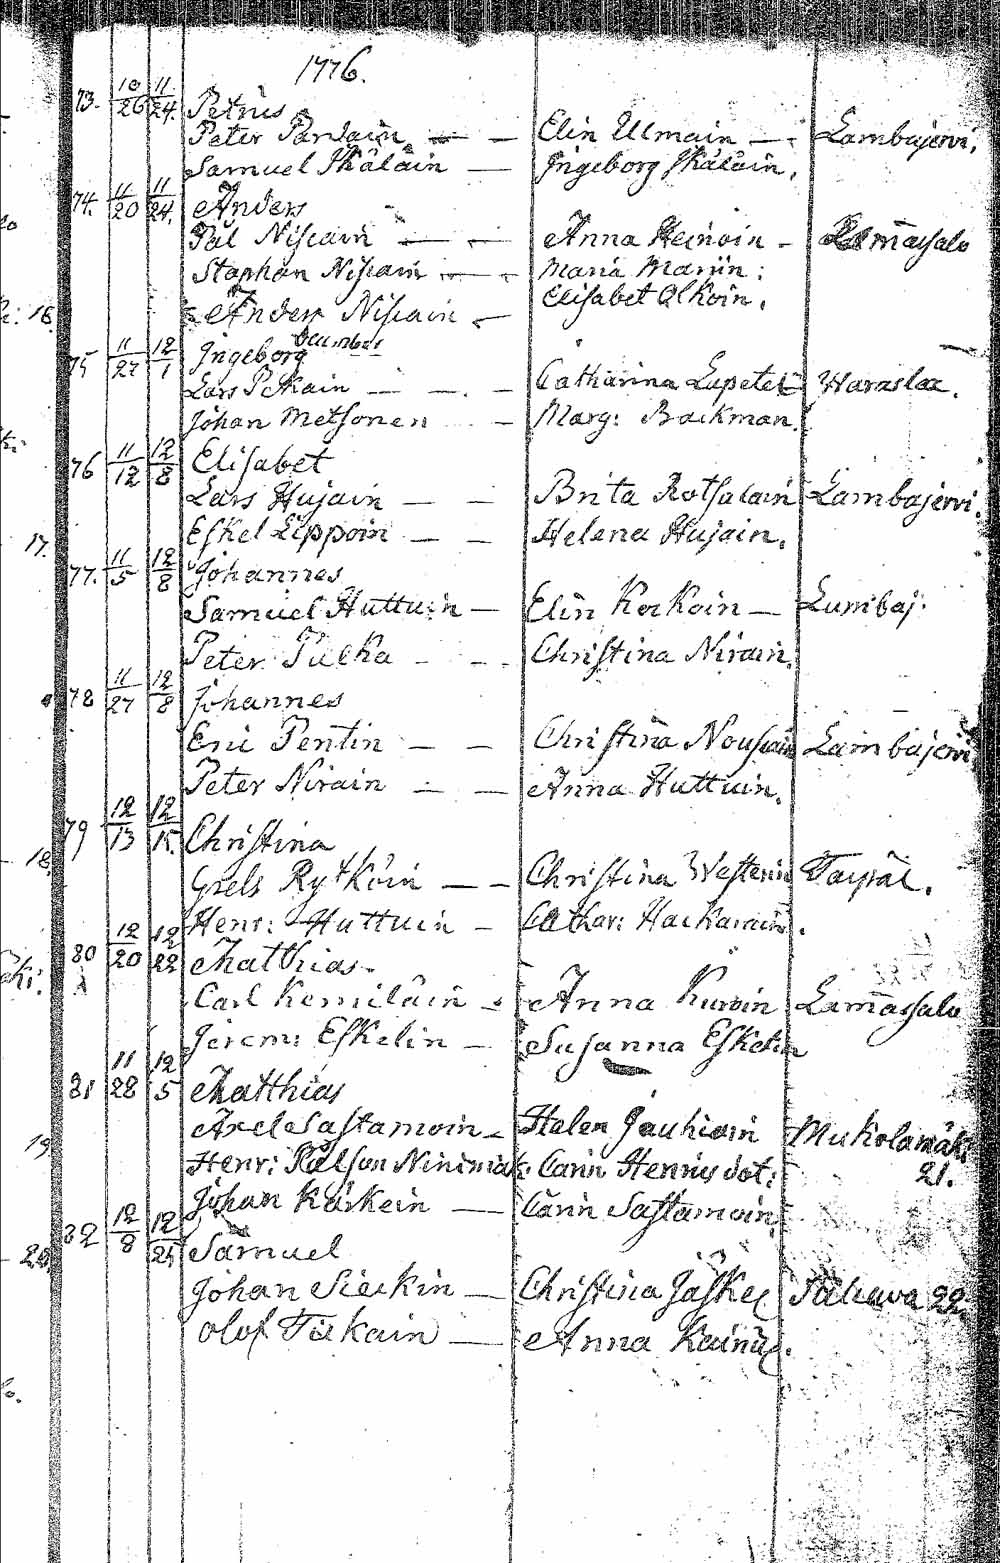 1776.
73. 10/26 11/24. Petrus
Peter Pardain — — Elin Ulmain — Lambajervi.
Samuel Ikäläin — Ingeborg Ikäläin.
74. 11/20 11/24. Anders
Pål Nissain — — Anna Heinoin — Lemassalo
Staphan Nissain — — Maria Mariin:
Anders Nissain — Elisabet Olkoin.
December
75 11/27 12/1 Ingeborg
Lars Pekain — — Catharina Lapetel Waraslax.
Johan Metsonen — Marg: Backman.
76 11/12 12/8 Elisabet
Lars Hujain — — Brita Rotsalain Lambajervi.
Eskel Lippoin — — Helena Hujain.
77. 11/5 12/8 Johannes
Samuel Huttuin — Elin Kockoin — Lumbaj.
Peter Pulka — — Christina Nirain.
78 11/27 12/8 Johannes
Eric Pentin — — Christina Nousiain Lambajervi
Peter Nirain — — Anna Huttuin.
79 12/13 12/15. Christina
Grels Rytköin — — Christina Westerin Taipal.
Henr: Huttuin — Cathar: Hackarain.
80 12/20 12/22 Matthias
Carl Kemiläin — Anna Kurvin Lemassalo
Jerem: Eskelin — Susanna Eskelin
81 11/28 12/5 Matthias
Axel Sastamoin — Helen Jauhiain Mukolamäki
Henr: Pålson Ninimäk: Carin Henrics dot: 21.
Johan Käskein — Carin Sastamoin.
82 12/8 12/25 Samuel
Johan Sieckin — Christina Jäskel 22.
Olof Tiikain — Anna Kainul.
16
17.
18.
19
20.